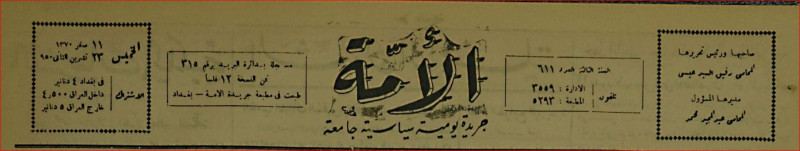 صاحبها ورئيس تحريرها
المحامي رفيق السيد عيسى
مديرها المسؤول
المحامي عبد المجيد محمد
السنة الثالثة العدد ٦١١
تلفون
الادارة : ٣٥٥٩
المطبعة : ٥٢٩٣
الأمة
جريدة يومية سياسية جامعة
مسجلة بدائرة البريد برقم ٣١٥
ثمن النسخة ١٢ فلساً
طبعت في مطبعة جريدة الامة - بغداد
الخميس
١١ صفر ١٣٧٠
٢٣ تشرين الثاني ٩٥٠
الاشتراك
في بغداد ٤ دنانير
داخل العراق ٤٫٥٠٠
خارج العراق ٥ دنانير